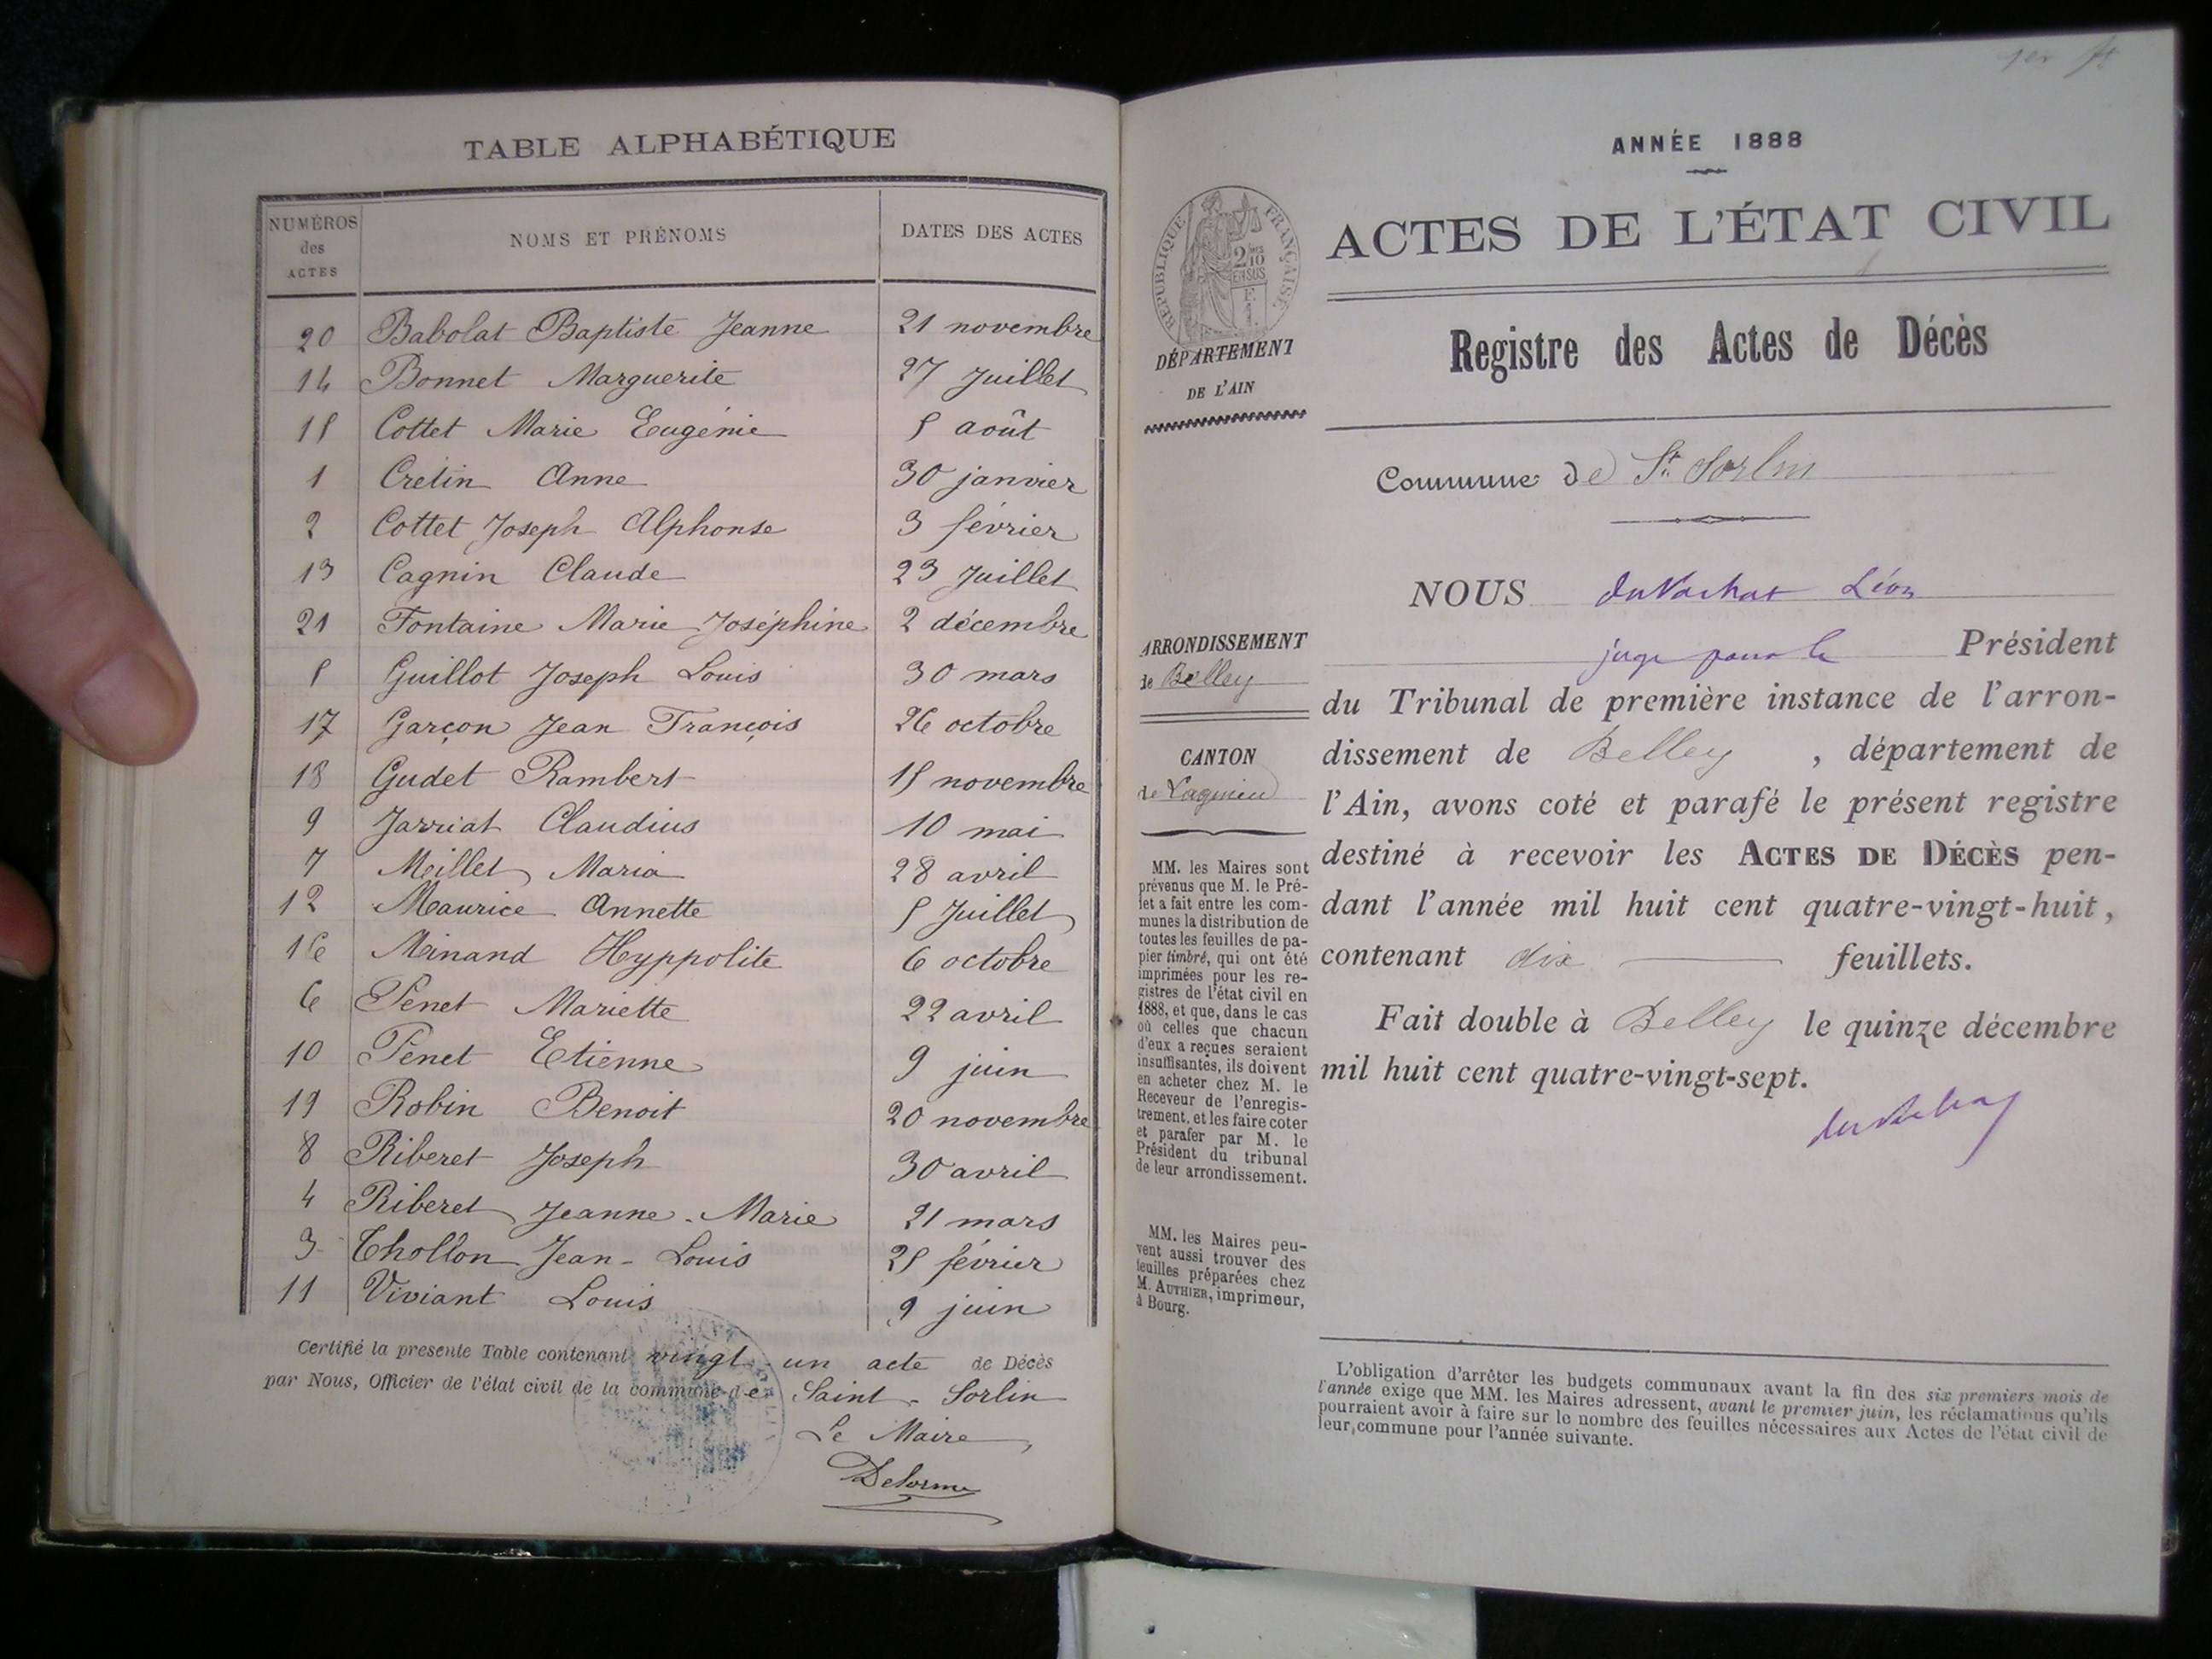 TABLE ALPHABÉTIQUE
NUMÉROS des ACTES NOMS ET PRÉNOMS DATES DES ACTES
20 Babolat Baptiste Jeanne 21 novembre
14 Bonnet Marguerite 27 Juillet
15 Cottet Marie Eugénie 5 août
1 Cretin Anne 30 janvier
2 Cottet Joseph Alphonse 3 février
13 Cagnin Claude 23 Juillet
21 Fontaine Marie Joséphine 2 décembre
5 Guillot Joseph Louis 30 mars
17 Garçon Jean François 26 octobre
18 Gudet Rambert 15 novembre
9 Jarriat Claudius 10 mai
7 Meillet Maria 28 avril
12 Maurice Annette 5 Juillet
16 Minand Hyppolite 6 octobre
6 Penet Mariette 22 avril
10 Penet Etienne 9 juin
19 Robin Benoit 20 novembre
8 Riberet Joseph 30 avril
4 Riberet Jeanne-Marie 21 mars
3 Thollon Jean-Louis 25 février
11 Viviant Louis 9 juin
Certifié la presente Table contenant vingt-un acte de Décès
par Nous, Officier de l'état civil de la commune de Saint-Sorlin
Le Maire,
Delorme
ANNÉE 1888
ACTES DE L'ÉTAT CIVIL
RÉPUBLIQUE FRANÇAISE
DÉPARTEMENT
DE L'AIN
Registre des Actes de Décès
Commune de St. Sorlin
ARRONDISSEMENT
de Belley
CANTON
de Lagnieu
MM. les Maires sont
prévenus que M. le Pré-
fet a fait entre les com-
munes la distribution de
toutes les feuilles de pa-
pier timbré, qui ont été
imprimées pour les re-
gistres de l'état civil en
1888, et que, dans le cas
où celles que chacun
d'eux a reçues seraient
insuffisantes, ils doivent
en acheter chez M. le
Receveur de l'enregis-
trement, et les faire coter
et parafer par M. le
Président du tribunal
de leur arrondissement.
MM. les Maires peu-
vent aussi trouver des
feuilles préparées chez
M. AUTHIER, imprimeur,
à Bourg.
NOUS duVachat Léon
juge pour le Président
du Tribunal de première instance de l'arron-
dissement de Belley , département de
l'Ain, avons coté et parafé le présent registre
destiné à recevoir les ACTES DE DÉCÈS pen-
dant l'année mil huit cent quatre-vingt-huit,
contenant dix feuillets.
Fait double à Belley le quinze décembre
mil huit cent quatre-vingt-sept.
L'obligation d'arrêter les budgets communaux avant la fin des six premiers mois de
l'année exige que MM. les Maires adressent, avant le premier juin, les réclamations qu'ils
pourraient avoir à faire sur le nombre des feuilles nécessaires aux Actes de l'état civil de
leur commune pour l'année suivante.